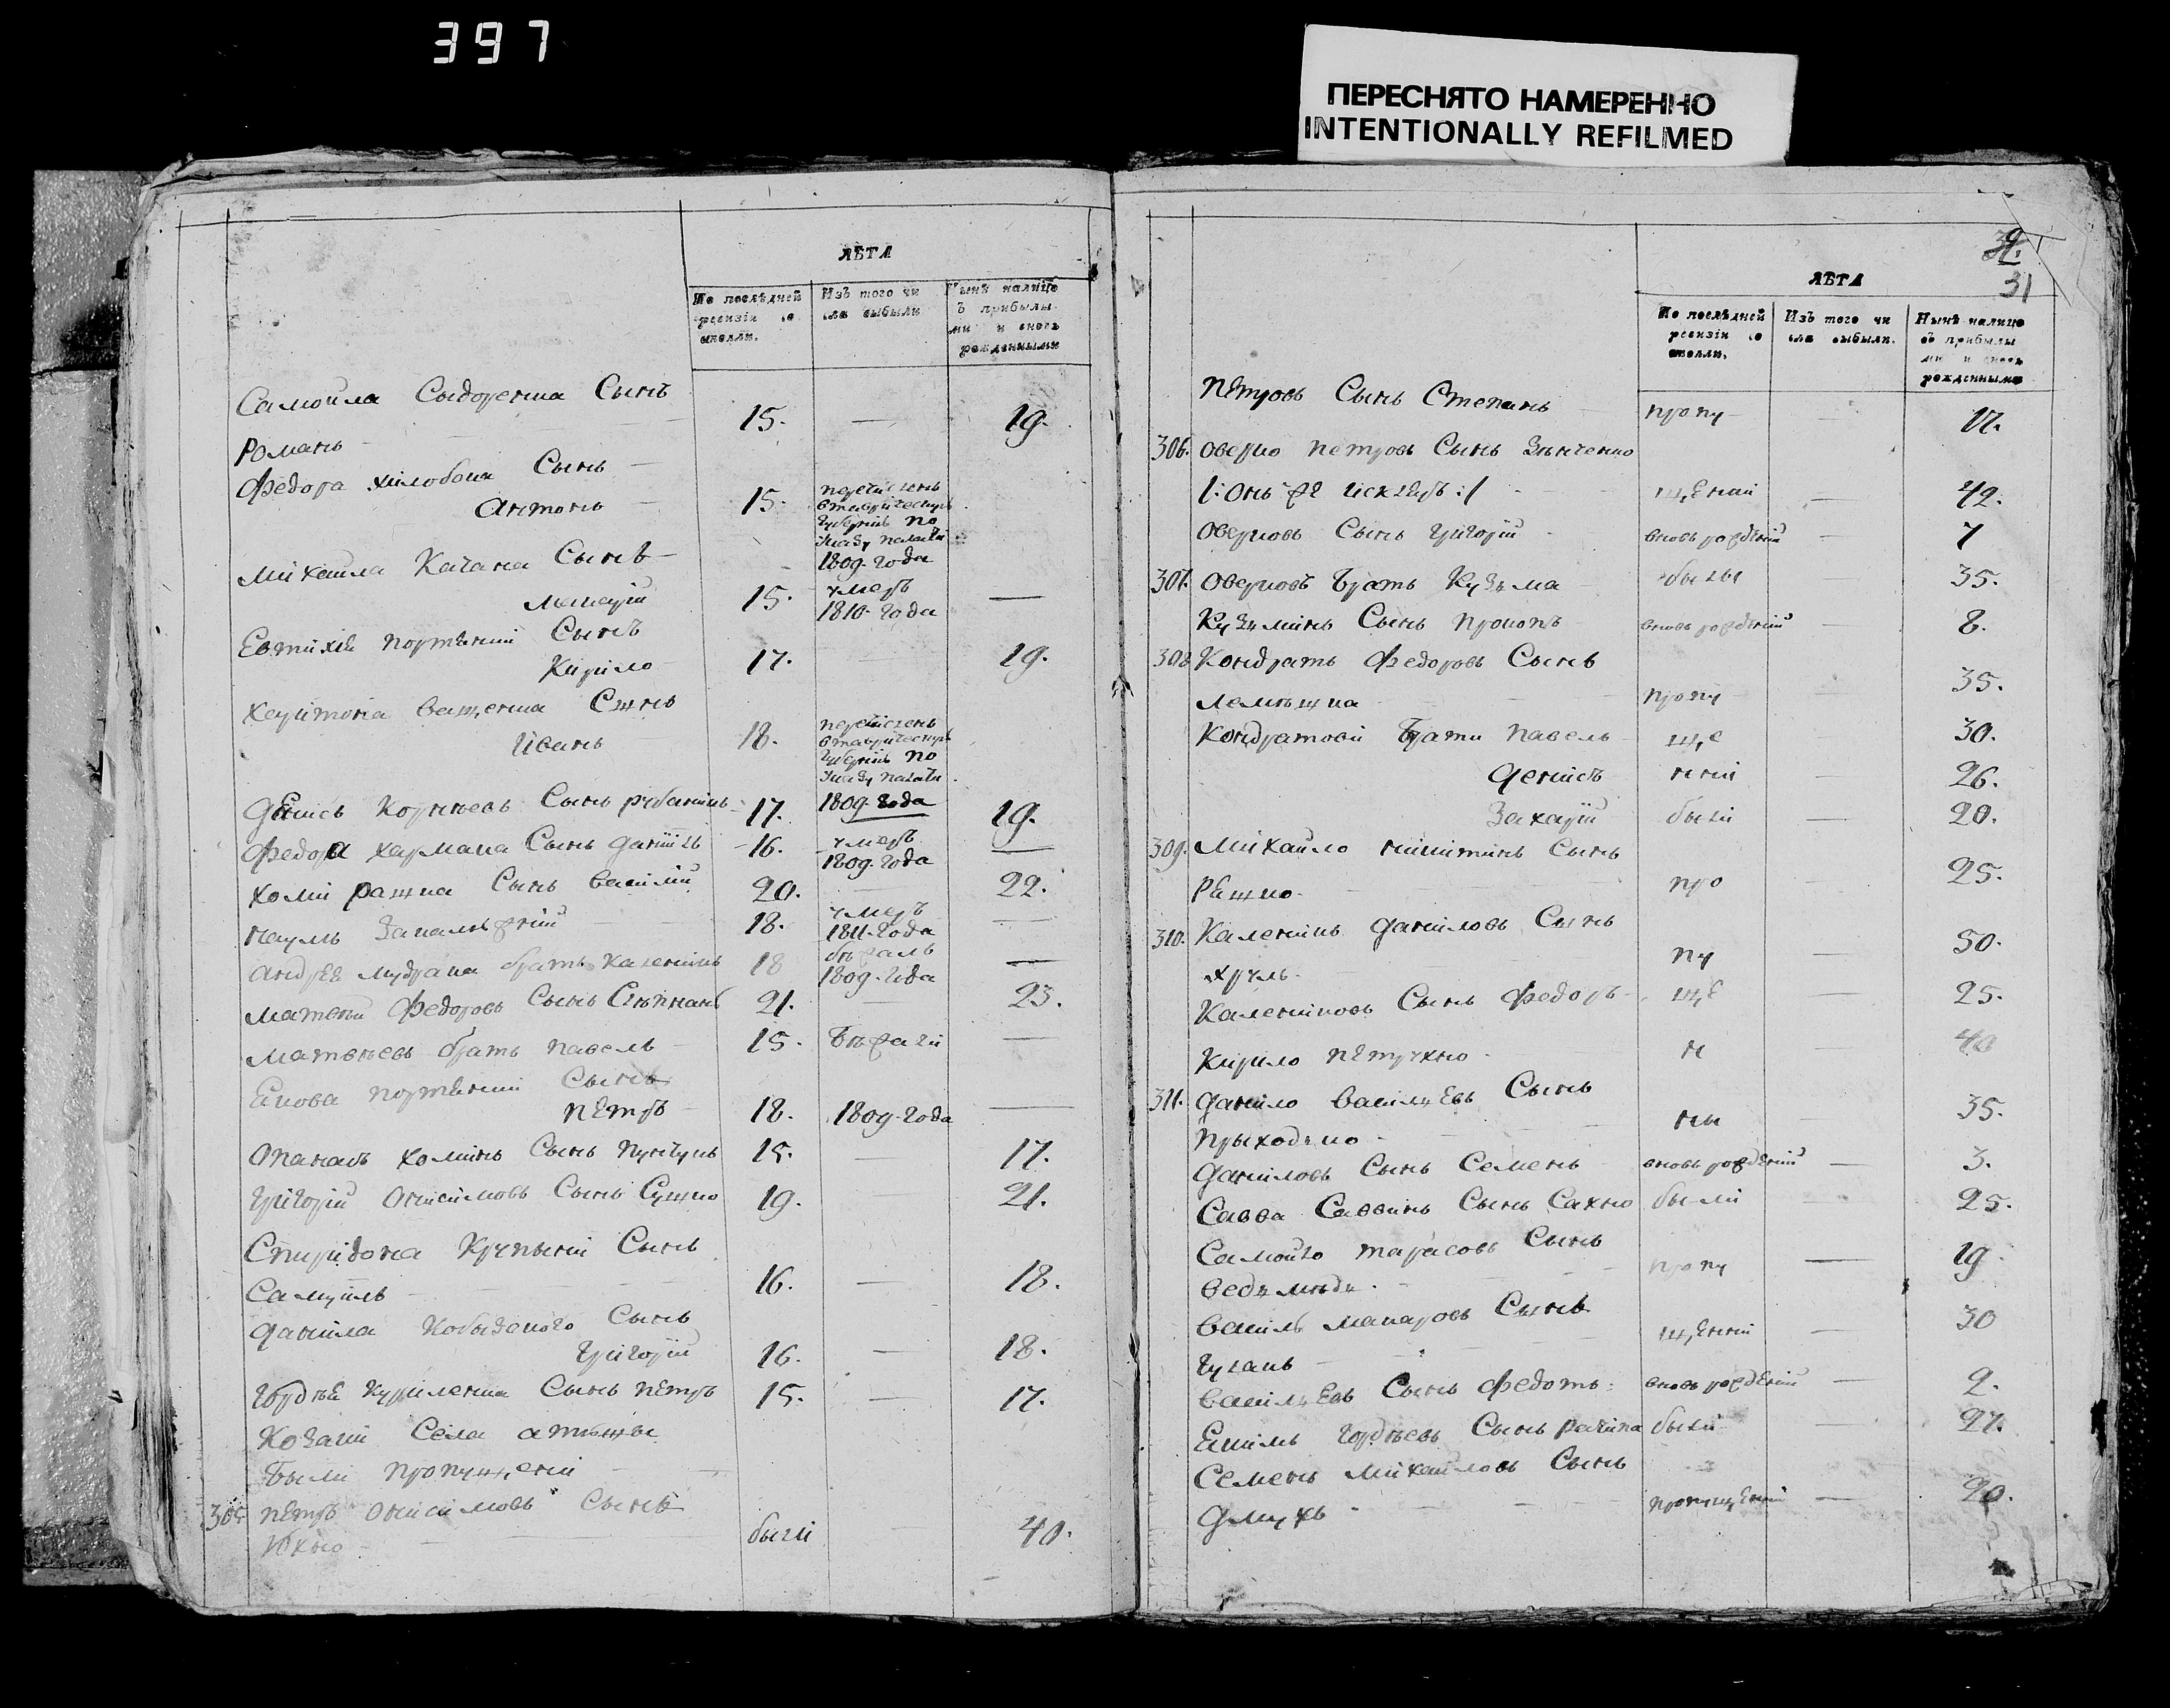 397
ПЕРЕСНЯТО НАМЕРЕННО
INTENTIONALLY REFILMED
ЛѢТА
По послѣдней ревизіи со стояли.
Изъ того чи сла выбыли
Нынѣ налицо съ прибылы ми и вновь рожденными
Самойла Сыдоренка Сынъ
Романъ 15. — 19.
Федора Хилобока Сынъ
Антонъ 15. перечисленъ
въ таврическую
губернію по
указу палаты
1809. года
Михайла Качана Сынъ
15. умеръ —
1810. года
Евтихія портяний Сынъ
Кирило 17. 19.
Харитона Ващенка Сынъ
Иванъ 18. перечисленъ
въ таврическую
губернію по
указу палаты
1809. года
Корнѣевъ Сынъ 17. 19.
Федора Хармака Сынъ Данііль 16. умеръ —
1809. года
Хоми Рашка Сынъ Василій 20. — 22.
Наумъ 18. умеръ —
1811. года
Андрея Мудрака братъ Каленикъ 18 бѣжалъ —
1809. года
Матвѣй Федоровъ Сынъ 21. — 23.
Матвѣевъ братъ Павелъ 15. бѣжали —
Якова портяний Сынъ
Петръ 18. 1809. года —
Опанасъ Хоминъ Сынъ 15. — 17.
Григорій Онисимовъ Сынъ Сушко 19. — 21.
Спиридона Крупыній Сынъ
Самуилъ 16. — 18.
Данила Кобыдского Сынъ
Григорій 16. — 18.
Гордѣя Куриленка Сынъ Петръ 15. — 17.
Козаки Села
были пропущени
305 Петръ Онисимовъ Сынъ
Юхно были 40.
31
ЛѢТА
По послѣдней ревизіи со стояли.
Изъ того чи сла выбыли.
Нынѣ налицо съ прибылы ми и вновь рожденными
Петровъ Сынъ Степанъ пропу — 17.
306. Оверко Петровъ Сынъ Зѣнченко
/: онъ же :/ щений — 42.
Оверковъ Сынъ Григорій вновь рожденій 7
307. Оверковъ братъ Кузьма были 35.
Кузьминъ Сынъ Прокопъ вновь рожденій — 8.
308 Кондратъ Федоровъ Сынъ
Лемѣшка пропу 35.
Кондратови брати Павелъ ще — 30.
Денисъ нни — 26.
Захарій были — 20.
309. Михайло Никитинъ Сынъ
Режко про — 25.
310. Каленикъ Даниловъ Сынъ
Хруль. пу — 50.
Калениковъ Сынъ Федоръ ще — 25.
Кирило Петрухно н 40
311. Данило Васильевъ Сынъ
Прыходько ны — 35.
Даниловъ Сынъ Семенъ вновь рожденій — 3.
Савва Саввинъ Сынъ Сахно были — 25.
Самойло Тарасовъ Сынъ
Ведьмѣдь пропу — 19
Василь Макаровъ Сынъ
щении — 30
Васильевъ Сынъ Федотъ вновь рожденій — 2.
Екимъ Гордѣевъ Сынъ были — 27.
Семенъ Михайловъ Сынъ
пропущеній — 20.